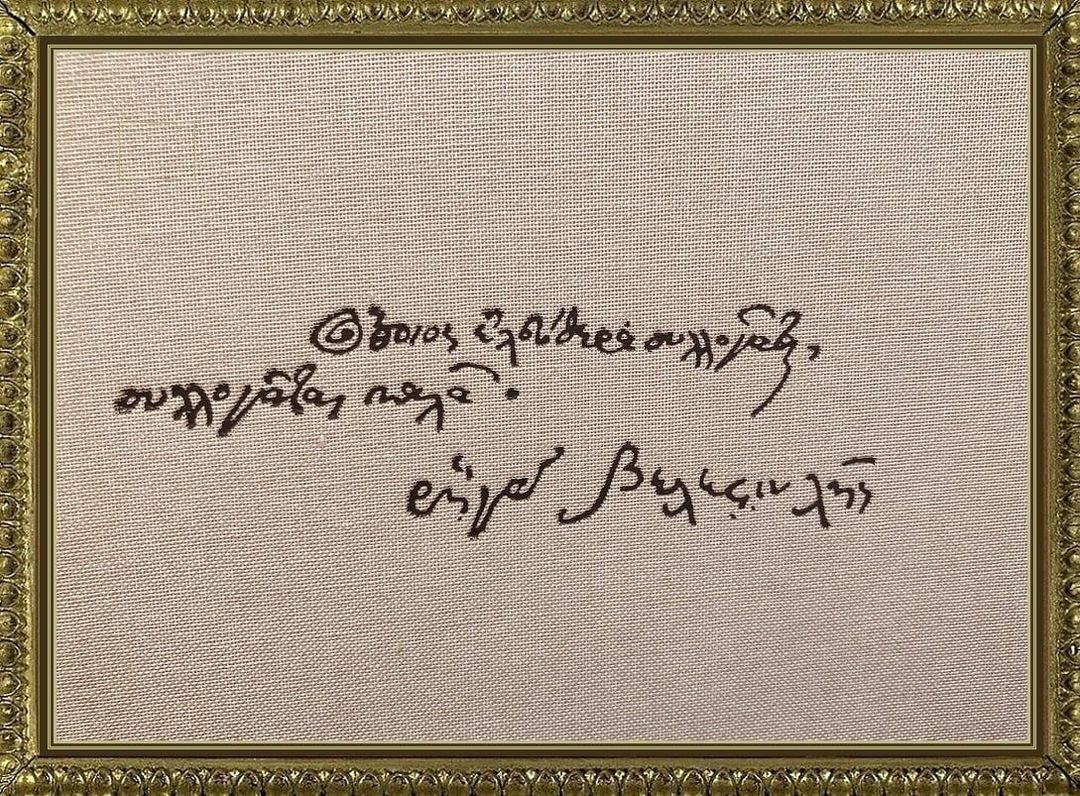 Ὅποιος ἐλεύθερα συλλογᾶται,
συλλογᾶται καλά.
ῥήγας βελεστινλῆς